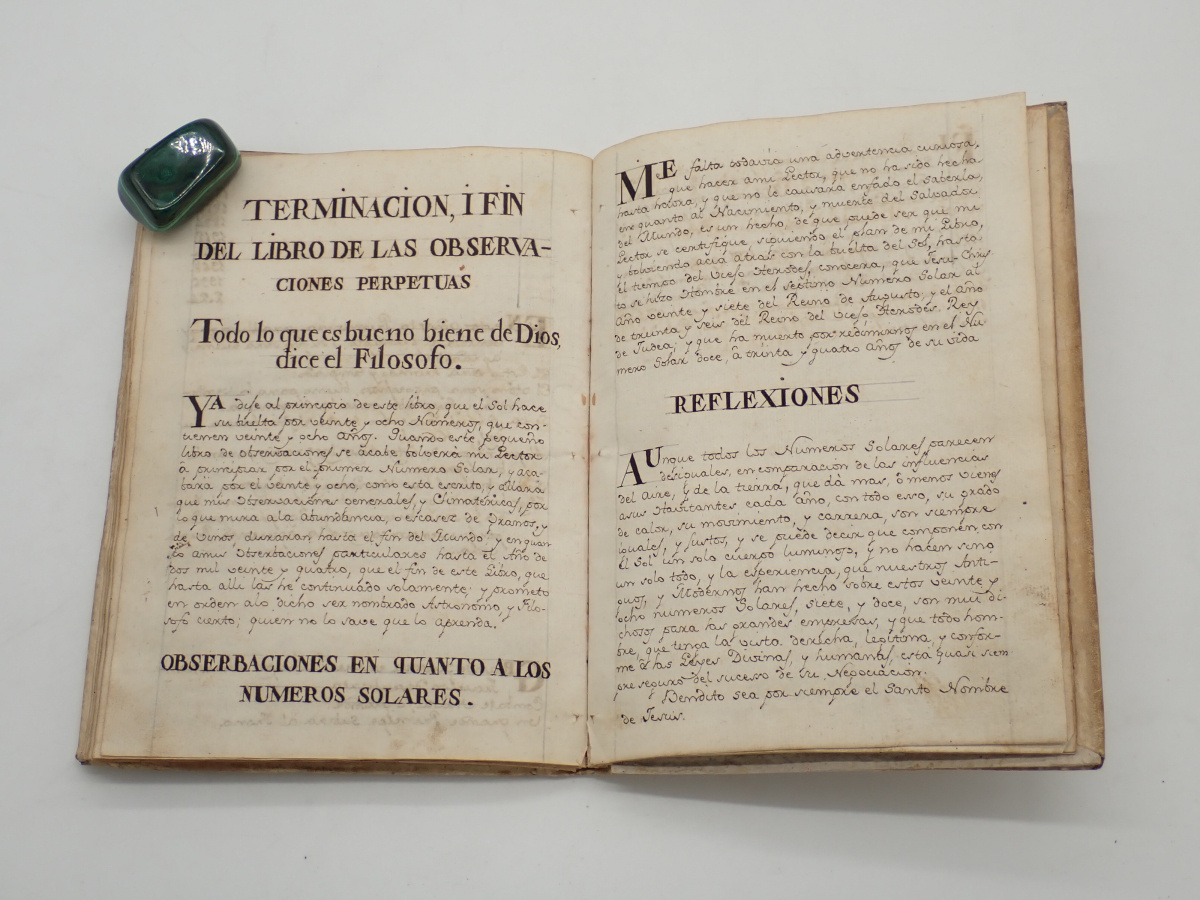 TERMINACION, I FIN
DEL LIBRO DE LAS OBSERVA-
CIONES PERPETUAS
Todo lo que es bueno biene de Dios,
dice el Filosofo.
YA dise al principio de este libro, que el Sol hace
su buelta por veinte y ocho Numeros, que con-
tienen veinte y ocho años. Quando este pequeño
libro de observaciones se acabe bolverá mi Lector
â principiar por el primer Numero Solar, y aca-
bará por el veinte y ocho, como está escrito, y allará
que mis Observaciones generales, y Climatericas, por
lo que mira a la abundancia, o escases de Granos, y
de Vinos duraran hasta el fin del Mundo; y en quan-
to a mis Observaciones particulares hasta el Año de
dos mil veinte y quatro, que el fin de este Libro, que
hasta alli las he continuado solamente; y prometo
en orden alo dicho ser nombrado Astronomo, y Filo-
sofo cierto; quien no lo save que lo aprenda.
OBSERBACIONES EN QUANTO A LOS
NUMEROS SOLARES.
ME falta todavia una adventencia curiosa,
que hacer ami Lector, que no ha sido hecha
hasta haora, y que no le causara enfado el saberla,
en quanto al Nacimiento, y muerte del Salvador
del Mundo, es un hecho, de que puede ser que mi
Lector se certifique, siguiendo el plan de mi Libro,
y bolviendo acia atras con la buelta del Sol, hasta
el tiempo del Viejo Herodes, conocera, que Jesu-Chris
to se hizo Hombre en el septimo Numero Solar al
año veinte y siete del Reino de Augusto, y el año
de treinta y seis del Reino del Viejo Herodes, Rey
de Judea; y que ha muerto por redimirnos en el Nu-
mero Solar doce, â treinta y quatro años de su vida
REFLEXIONES
AUnque todos los Numeros Solares parecen
desiguales, en comparacion de las influencias
del aire, y de la tierra, que dá mas, ô menos vienes
asus Havitantes cada año, con todo esso, su grado
de calor, su movimiento, y carrera, son siempre
iguales, y justos, y se puede decir que componen con
el Sol un solo cuerpo luminoso, y no hacen sino
un solo todo, y la esperiencia, que nuestros Anti-
guos, y Modernos han hecho sobre estos veinte y
ocho numeros Solares, siete, y doce, son mui di-
chosos para las grandes empresas, y que todo hom-
bre, que tenga la vista derecha, legitima, y confor-
me â las Leyes Divinas, y humanas, está quasi siem
pre seguro del sucesso de su Negociacion.
Bendito sea por siempre el Santo Nombre
de Jesus.